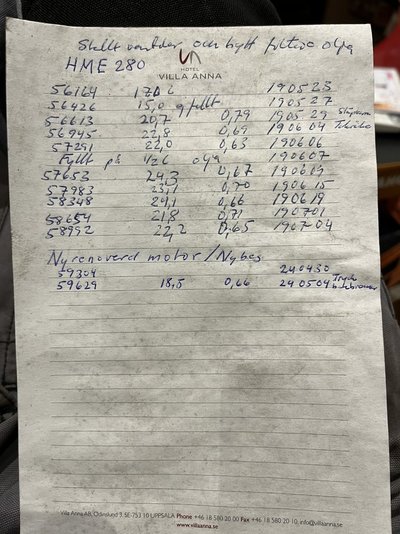 Ställt ventiler och bytt filter o olja
HME 280
HOTEL
VILLA ANNA
56164 17,0 190523
56426 15,0 ej fullt 190527
56613 20,7 0,79 190529
56945 22,8 0,69 190604
57291 22,0 0,63 190606
Fyllt på olja 190607
57653 24,3 0,67
57983 23,1 0,70 190615
58348 24,1 0,66 190619
58654 21,8 0,71 190701
58992 22,2 0,65 190704
Nyrenoverd motor/Nybes
59304 240430
59629 18,5 0,66 240504 Tryck
Villa Anna AB, Odinslund 3, SE-753 10 UPPSALA Phone +46 18 580 20 00 Fax +46 18 580 20 10, info@villaanna.se
www.villaanna.se